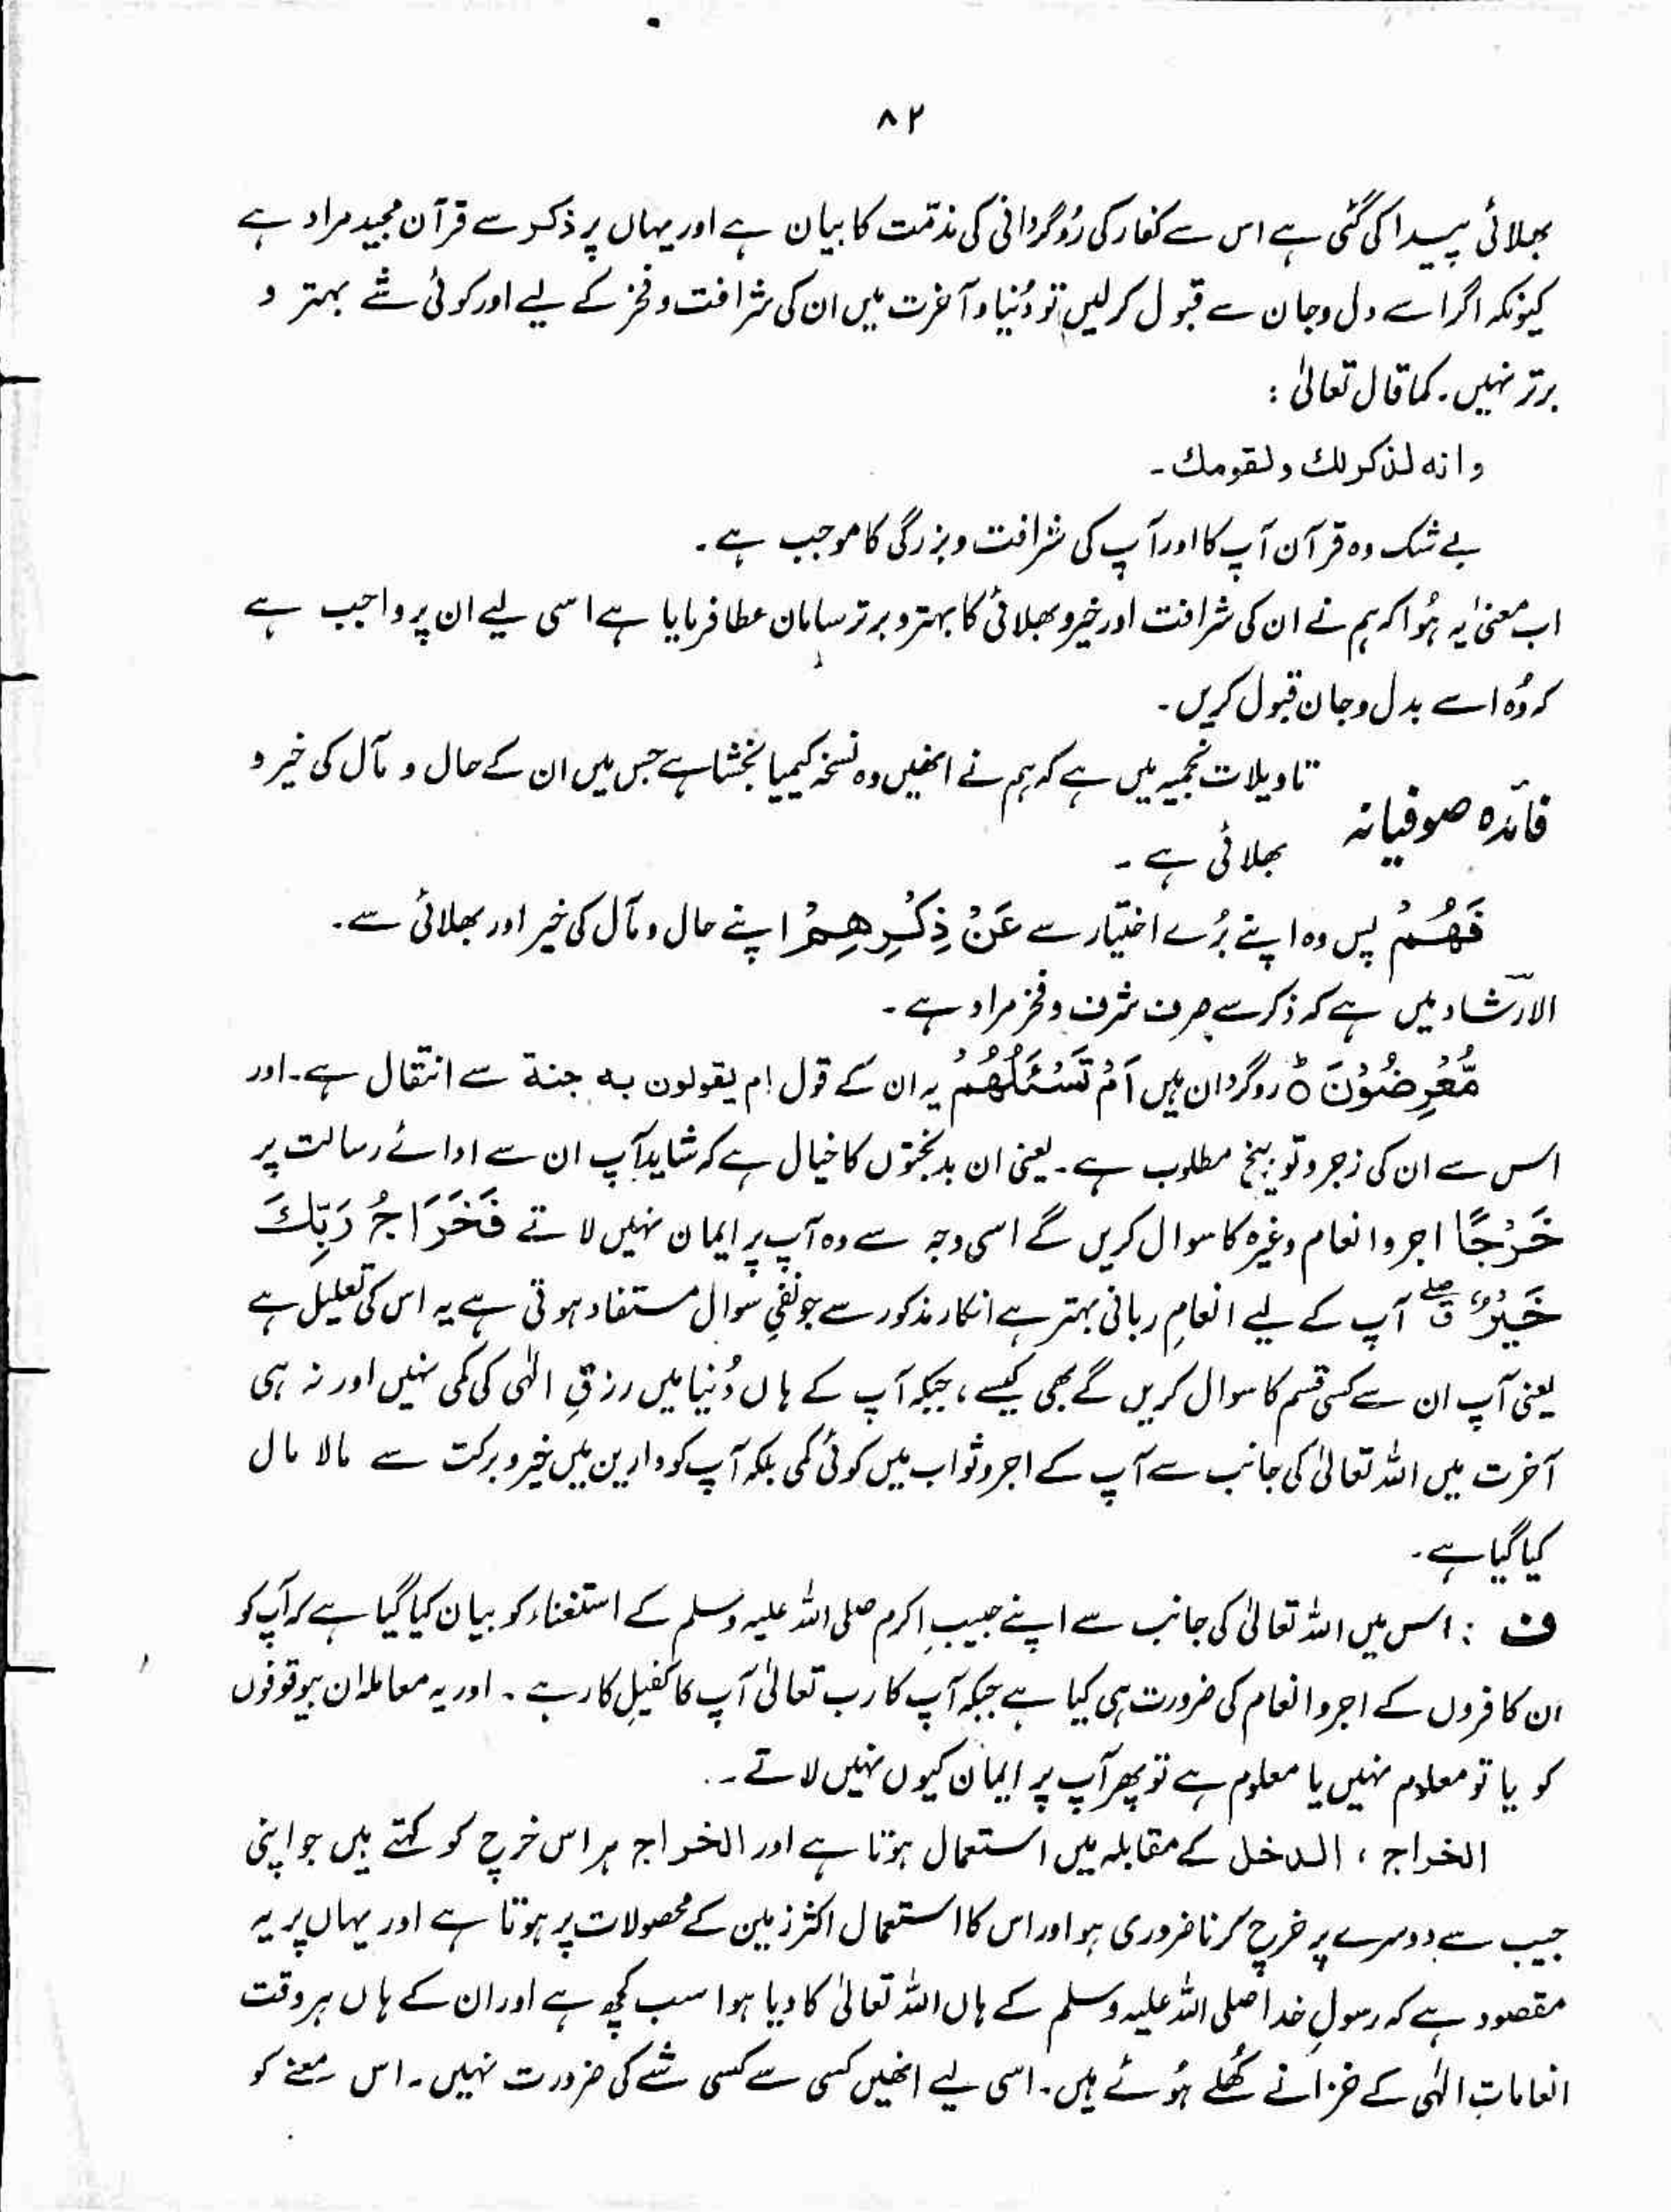 ۸۲
بھلائی پیدا کی گئی ہے اس سے کفار کی رُوگردانی کی مذمّت کا بیان ہے اور یہاں پر ذکر سے قرآن مجید مراد ہے
کیونکہ اگر اسے دل وجان سے قبول کرلیں تو دُنیا و آخرت میں ان کی شرافت و فخر کے لیے اور کوئی شے بہتر و
برتر نہیں۔ کما قال تعالیٰ :
وانه لذكر لك ولقومك ۔
بے شک وہ قرآن آپ کا اور آپ کی شرافت و بزرگی کا موجب ہے۔
اب معنیٰ یہ ہُوا کہ ہم نے ان کی شرافت اور خیر و بھلائی کا بہتر و برتر سامان عطا فرمایا ہے اسی لیے ان پر واجب ہے
کہ وُہ اسے بدل و جان قبول کریں۔
تاویلات نجمیہ میں ہے کہ ہم نے انھیں وہ نسخۂ کیمیا بخشا ہے جس میں ان کے حال و مآل کی خیر و
فائدہ صوفیانہ
بھلائی ہے ۔
فَهُمْ پس وہ اپنے بُرے اختیار سے عَنْ ذِكْرِهِمْ اپنے حال و مآل کی خیر اور بھلائی سے۔
الارشاد میں ہے کہ ذکر سے صرف شرف و فخر مراد ہے ۔
مُّعْرِضُوْنَ ۝ؕ روگردان ہیں اَمْ تَسْـَٔلُهُمْ یہ ان کے قول ام يقولون به جنة سے انتقال ہے۔ اور
اس سے ان کی زجر و توبیخ مطلوب ہے ۔ یعنی ان بدبختوں کا خیال ہے کہ شاید آپ ان سے ادائے رسالت پر
خَرْجًا اجر و انعام وغیرہ کا سوال کریں گے اسی وجہ سے وہ آپ پر ایمان نہیں لاتے فَخَرَاجُ رَبِّكَ
خَيْرٌ ۖ ق آپ کے لیے انعامِ ربانی بہتر ہے انکار مذکور سے جو نفیِ سوال مستفاد ہوتی ہے یہ اس کی تعلیل ہے
یعنی آپ ان سے کسی قسم کا سوال کریں گے بھی کیسے ، جبکہ آپ کے ہاں دُنیا میں رزقِ الٰہی کی کمی نہیں اور نہ ہی
آخرت میں اللہ تعالیٰ کی جانب سے آپ کے اجر و ثواب میں کوئی کمی بلکہ آپ کو دارین میں خیر و برکت سے مالا مال
کیا گیا ہے۔
ف : اس میں اللہ تعالیٰ کی جانب سے اپنے حبیبِ اکرم صلی اللہ علیہ وسلم کے استغناء کو بیان کیا گیا ہے کہ آپ کو
ان کافروں کے اجر و انعام کی ضرورت ہی کیا ہے جبکہ آپ کا رب تعالیٰ آپ کا کفیلِ کار ہے ۔ اور یہ معاملہ ان بیوقوفوں
کو یا تو معلوم نہیں یا معلوم ہے تو پھر آپ پر ایمان کیوں نہیں لاتے ۔
الخراج ، الدخل کے مقابلہ میں استعمال ہوتا ہے اور الخراج ہر اس خرچ کو کہتے ہیں جو اپنی
جیب سے دوسرے پر خرچ کرنا ضروری ہو اور اس کا استعمال اکثر زمین کے محصولات پر ہوتا ہے اور یہاں پر یہ
مقصود ہے کہ رسولِ خدا صلی اللہ علیہ وسلم کے ہاں اللہ تعالیٰ کا دیا ہوا سب کچھ ہے اور ان کے ہاں ہر وقت
انعاماتِ الٰہی کے خزانے کُھلے ہُوئے ہیں۔ اسی لیے انھیں کسی سے کسی شے کی ضرورت نہیں۔ اس معنے کو